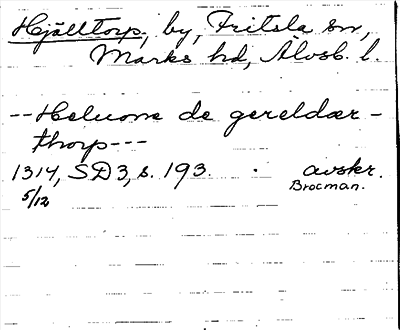 Hjälltorp, by, Fritsla sn,
Marks hd, Älvsb. l.
--Heluone de gereldær-
thorp---
1314, SD3, s. 193. avskr.
5/12 Brocman.